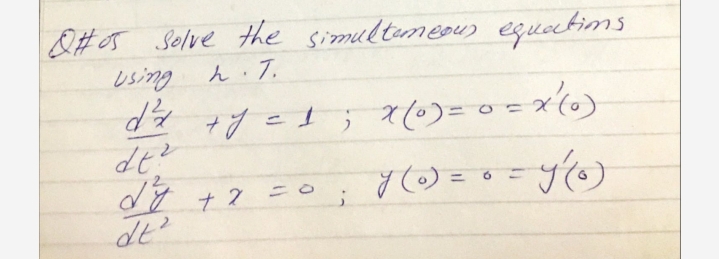 Q#05 Solve the simultaneous equations
using h.T.
d²x/dt² + y = 1 ; x(0) = 0 = x'(0)
d²y/dt² + x = 0 ; y(0) = 0 = y'(0)